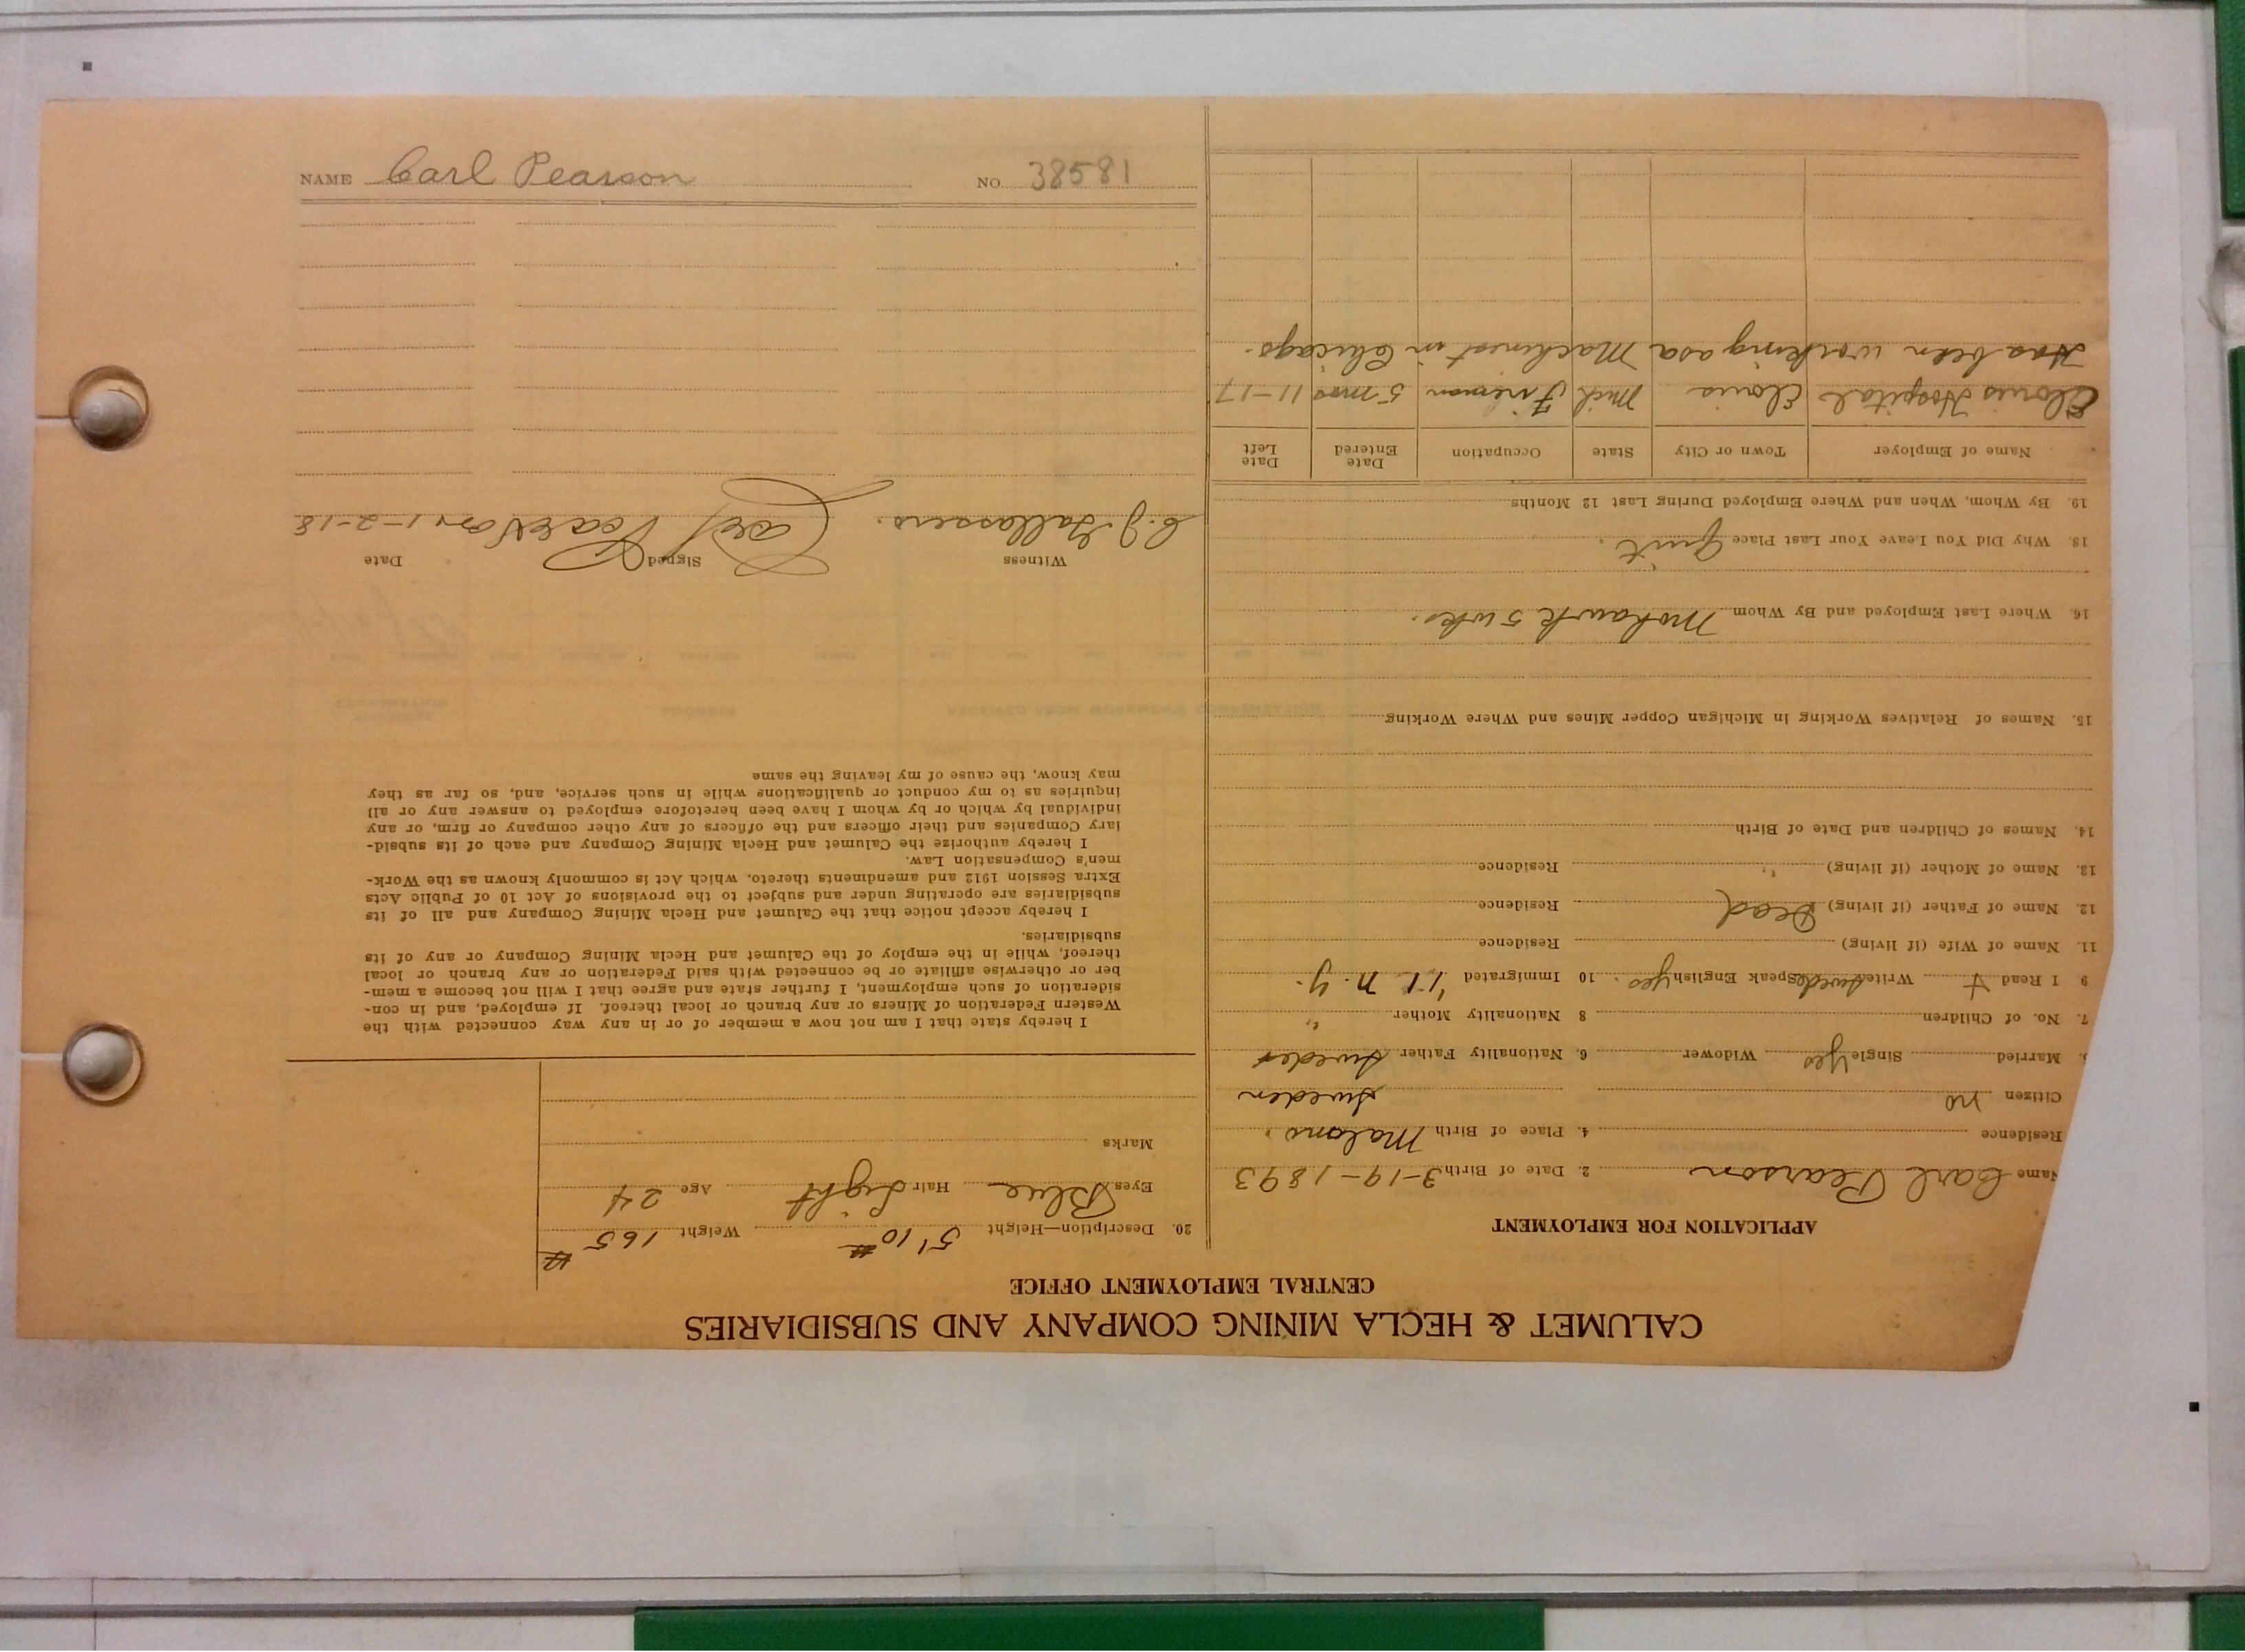 CALUMET & HECLA MINING COMPANY AND SUBSIDIARIES
CENTRAL EMPLOYMENT OFFICE
APPLICATION FOR EMPLOYMENT
Name Carl Pearson 2. Date of Birth 3-19-1893
Residence 4. Place of Birth Malono.
Citizen no Sweden
Married Single yes Widower 6. Nationality Father Swedes
7. No. of Children 8 Nationality Mother "
9 I Read + Write Swede Speak English yes. 10 Immigrated '11 N.Y.
11. Name of Wife (if living) Residence
12. Name of Father (if living) Dead Residence
13. Name of Mother (if living) " Residence
14. Names of Children and Date of Birth
15. Names of Relatives Working in Michigan Copper Mines and Where Working
16. Where Last Employed and By Whom Mohawk 5 wks.
18. Why Did You Leave Your Last Place Quit.
19. By Whom, When and Where Employed During Last 12 Months
Name of Employer Town or City State Occupation Date Entered Date Left
Elouis Hospital Elouis Mich Fireman 5 mos 11-17
Has been working as a Machinest in Chicago.
20. Description—Height 5'10" Weight 165 #
Eyes Blue Hair Light Age 24
Marks
I hereby state that I am not now a member of or in any way connected with the
Western Federation of Miners or any branch or local thereof. If employed, and in con-
sideration of such employment, I further state and agree that I will not become a mem-
ber or otherwise affiliate or be connected with said Federation or any branch or local
thereof, while in the employ of the Calumet and Hecla Mining Company or any of its
subsidiaries.
I hereby accept notice that the Calumet and Hecla Mining Company and all of its
subsidiaries are operating under and subject to the provisions of Act 10 of Public Acts
Extra Session 1912 and amendments thereto, which Act is commonly known as the Work-
men's Compensation Law.
I hereby authorize the Calumet and Hecla Mining Company and each of its subsid-
iary Companies and their officers and the officers of any other company or firm, or any
individual by which or by whom I have been heretofore employed to answer any or all
inquiries as to my conduct or qualifications while in such service, and, so far as they
may know, the cause of my leaving the same
Witness Signed Date
C.J. Carl Pearson 1-2-18
NAME Carl Pearson NO. 38581